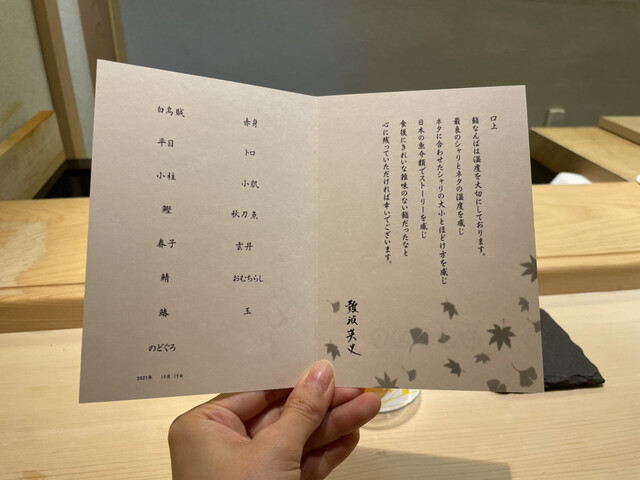 口上
鮨なんばは温度を大切にしております。
最良のシャリとネタの温度を感じ
ネタに合わせたシャリの大小とほどけ方を感じ
日本の魚介類でストーリーを感じ
食後にきれいな雑味のない鮨だったなと
心に残っていただければ幸いでございます。
難波英史
赤身
トロ
小肌
秋刀魚
雲丹
おむちらし
玉
白烏賊
平目
小柱
鰹
春子
鯖
鰆
のどぐろ
2021年